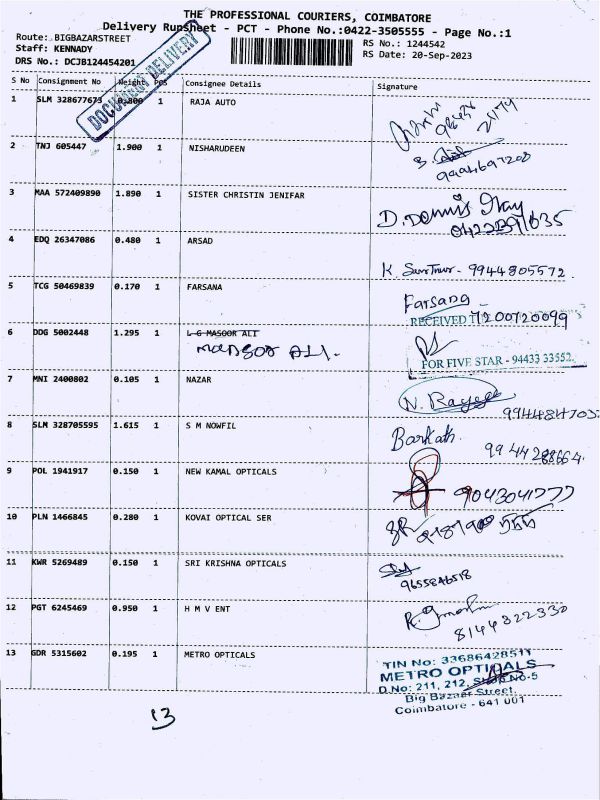 THE PROFESSIONAL COURIERS, COIMBATORE
Delivery Runsheet - PCT - Phone No.:0422-3505555 - Page No.:1
Route: BIGBAZARSTREET
RS No.: 1244542
Staff: KENNADY
RS Date: 20-Sep-2023
DRS No.: DCJB124454201
DOCUMENT DELIVERY
S No Consignment No Weight PCS Consignee Details Signature
1 SLM 328677673 0.800 1 RAJA AUTO
2 TNJ 605447 1.900 1 NISHARUDEEN
9944697208
3 MAA 572409890 1.890 1 SISTER CHRISTIN JENIFAR
D. Dennis
4 EDQ 26347086 0.480 1 ARSAD
K. - 9944805572
5 TCG 50469839 0.170 1 FARSANA
Farsana
RECEIVED 7200720099
6 DDG 5002448 1.295 1 L G MASOOR ALI
MANSOOR ALI.
FOR FIVE STAR - 94433 33552
7 MNI 2400802 0.105 1 NAZAR
N.
8 SLM 328705595 1.615 1 S M NOWFIL
Barkath.
99 44 288664.
9 POL 1941917 0.150 1 NEW KAMAL OPTICALS
9043041777
10 PLN 1466845 0.280 1 KOVAI OPTICAL SER
11 KWR 5269489 0.150 1 SRI KRISHNA OPTICALS
9655846518
12 PGT 6245469 0.950 1 H M V ENT
8144322330
13 GDR 5315602 0.195 1 METRO OPTICALS
TIN No: 33686428511
METRO OPTICALS
D.No: 211, 212, Shop No-5
Big Bazaar Street,
Coimbatore - 641 001
13